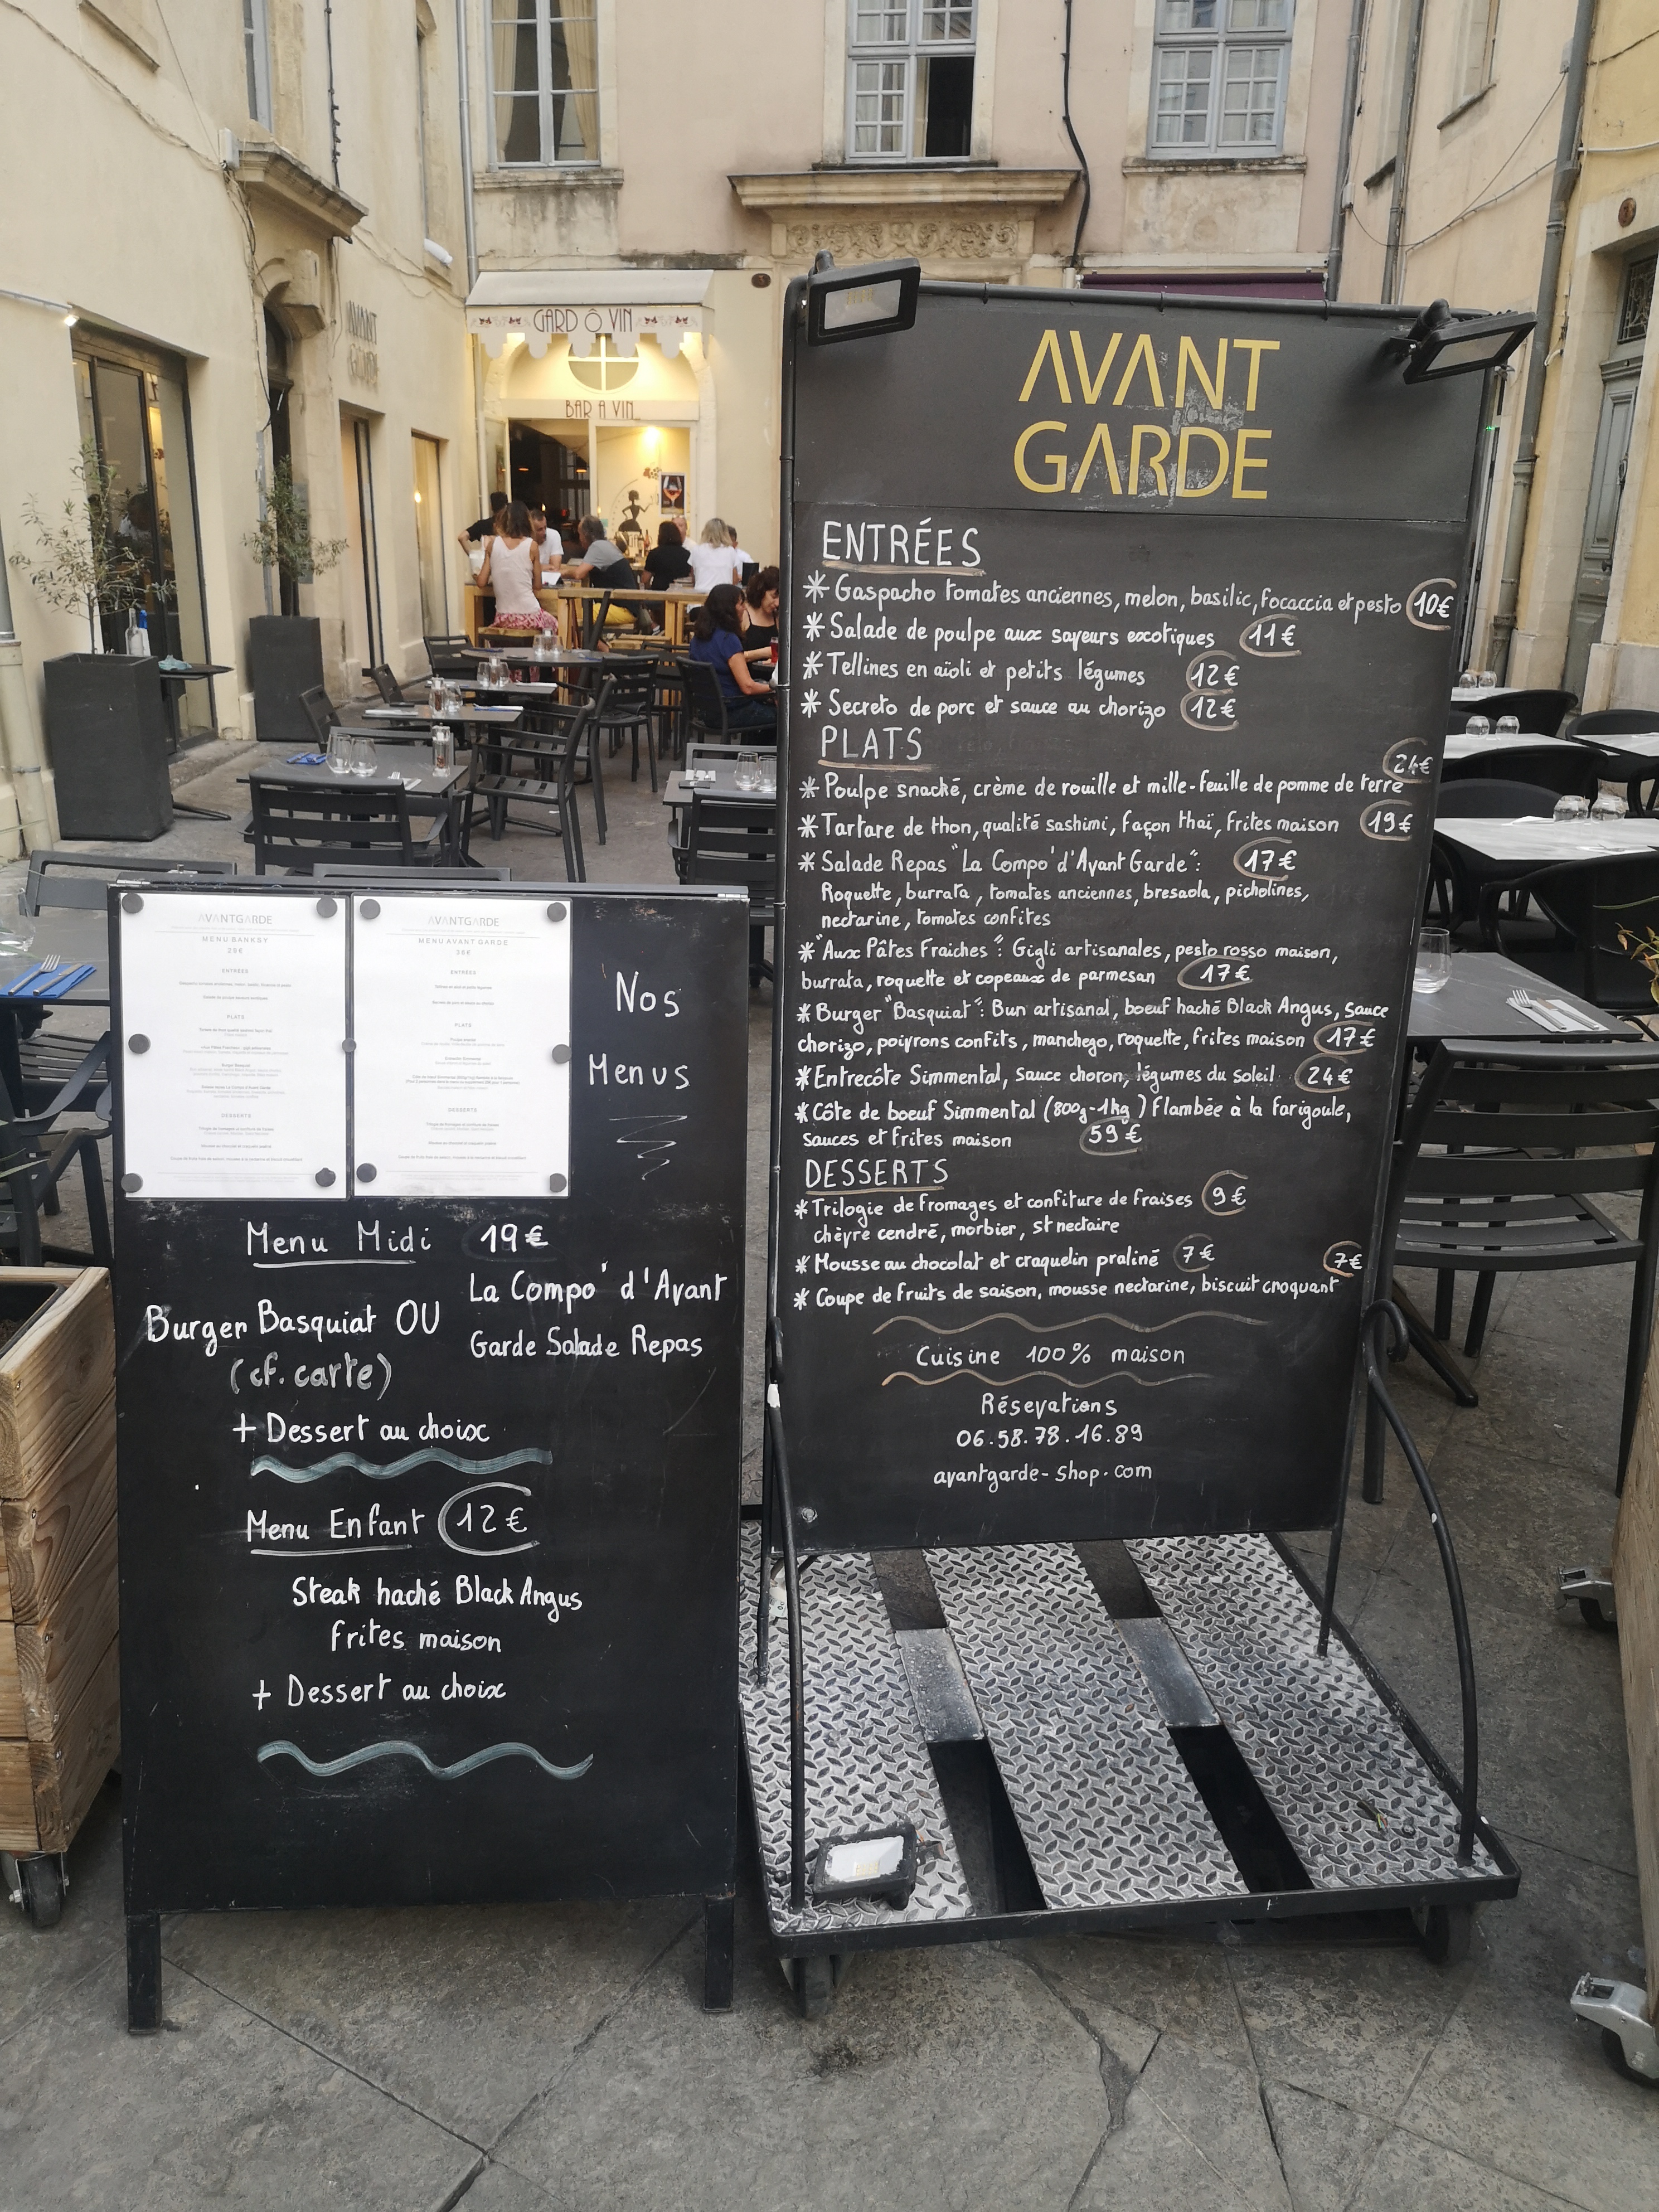 GARD Ô VIN
BAR A VIN
AVANT
GARDE
AVANT
GARDE
ENTRÉES
* Gaspacho tomates anciennes, melon, basilic, focaccia et pesto 10€
* Salade de poulpe aux saveurs exotiques 11€
* Tellines en aïoli et petits légumes 12€
* Secreto de porc et sauce au chorizo 12€
PLATS
24€
* Poulpe snacké, crème de rouille et mille-feuille de pomme de terre
* Tartare de thon, qualité sashimi, façon thaï, frites maison 19€
* Salade Repas "La Compo' d'Avant Garde": 17€
Roquette, burrata, tomates anciennes, bresaola, picholines,
nectarine, tomates confites
* "Aux Pâtes Fraiches": Gigli artisanales, pesto rosso maison,
burrata, roquette et copeaux de parmesan 17€
* Burger "Basquiat": Bun artisanal, boeuf haché Black Angus, sauce
chorizo, poivrons confits, manchego, roquette, frites maison 17€
* Entrecôte Simmental, sauce choron, légumes du soleil 24€
* Côte de boeuf Simmental (800g-1kg) flambée à la farigoule,
sauces et frites maison 59€
DESSERTS
* Trilogie de fromages et confiture de fraises 9€
chèvre cendré, morbier, st nectaire
* Mousse au chocolat et craquelin praliné 7€
7€
* Coupe de fruits de saison, mousse nectarine, biscuit croquant
Cuisine 100% maison
Résevations
06.58.78.16.89
avantgarde-shop.com
AVANTGARDE
MENU BANKSY
29€
ENTRÉES
PLATS
DESSERTS
AVANTGARDE
MENU AVANT GARDE
ENTRÉES
PLATS
DESSERTS
Nos
Menus
Menu Midi 19€
Burger Basquiat OU La Compo' d'Avant
(cf. carte) Garde Salade Repas
+ Dessert au choix
Menu Enfant 12€
Steak haché Black Angus
frites maison
+ Dessert au choix